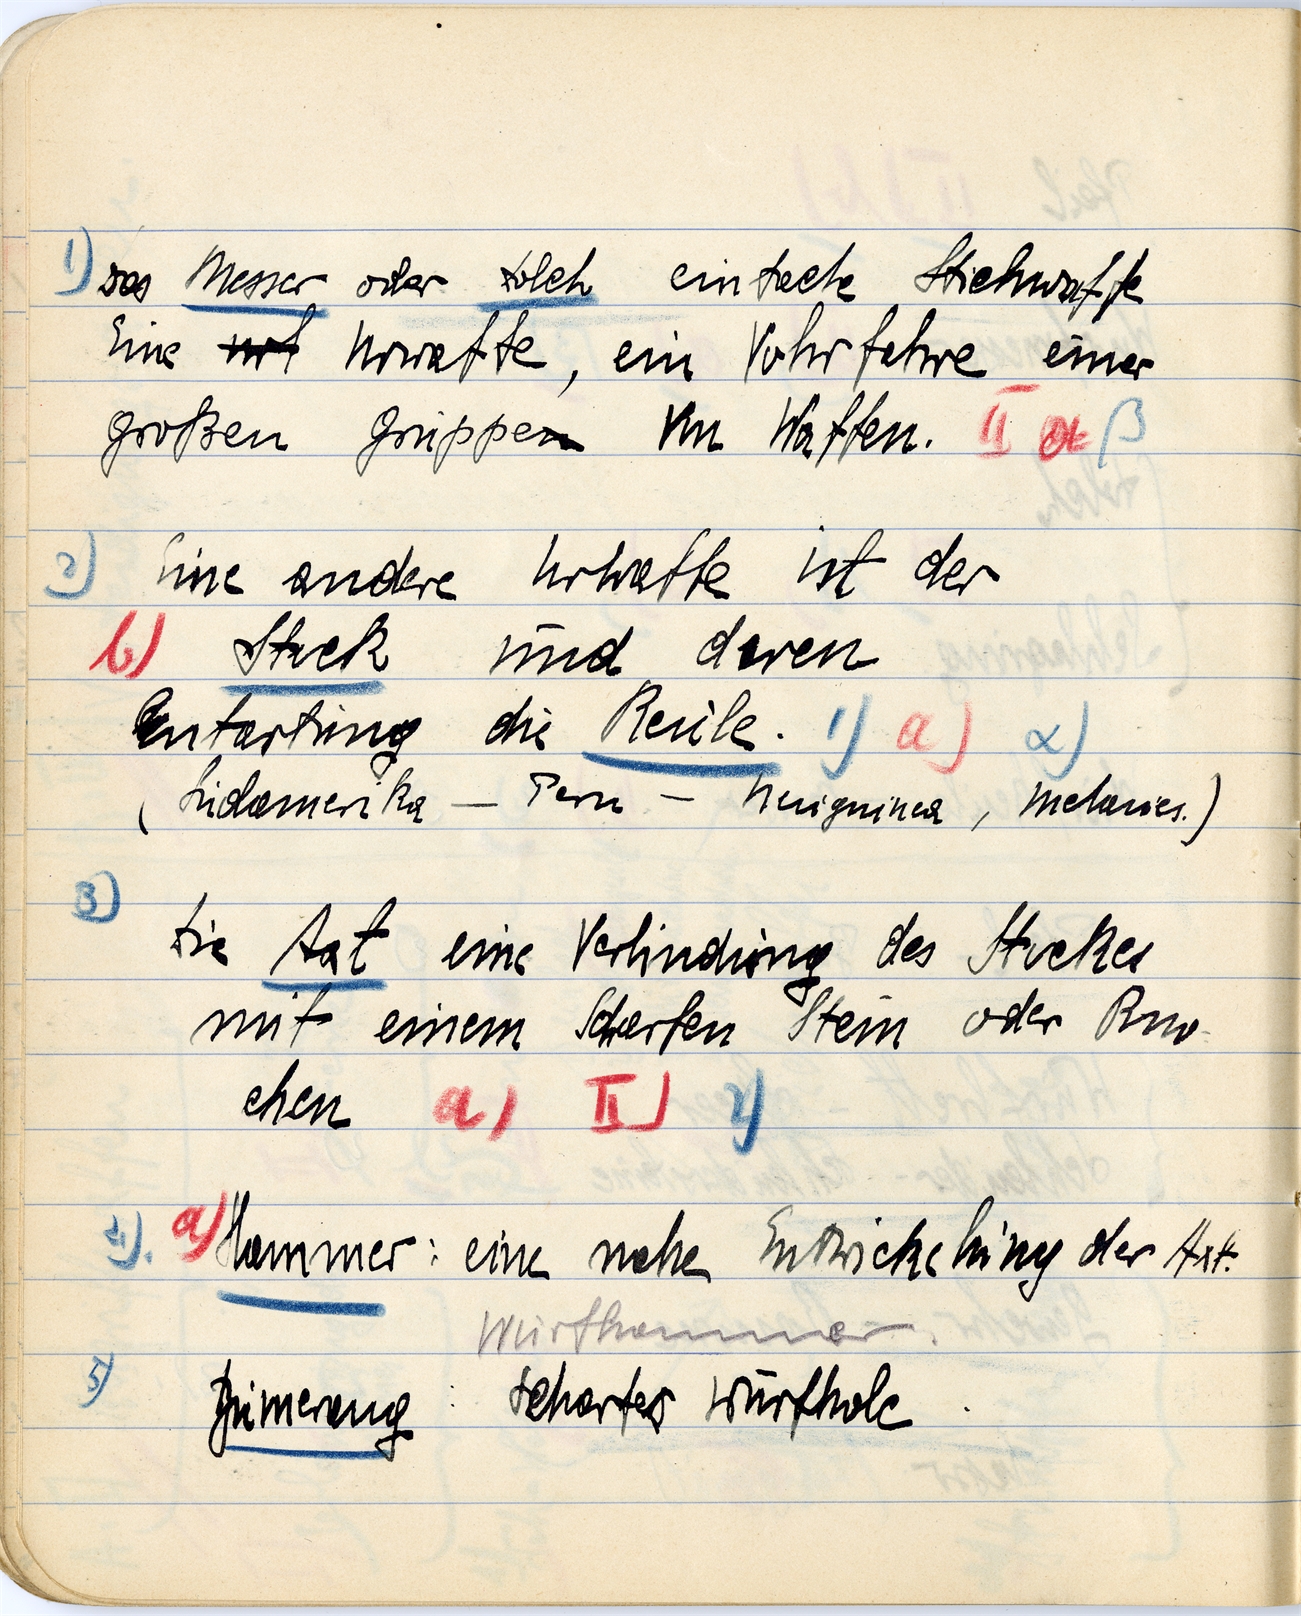 1) Das Messer oder Dolch einfache Stichwaffe
Eine Urwaffe, ein Vohrfahre einer
großen Gruppe von Waffen. II β
2) Eine andere Urwaffe ist der
b) Stock und deren
Entartung die Keule. 1) a) α)
(Südamerika – Peru – Neuguinea, Melanies.)
3)
Die Axt eine Verbindung des Stockes
mit einem Scharfen Stein oder Kno-
chen a) II) 2)
4). a) Hammer: eine nahe Entwickelung der Axt.
Wurfhammer.
5) Bumerang: scharfes Wurfholz.